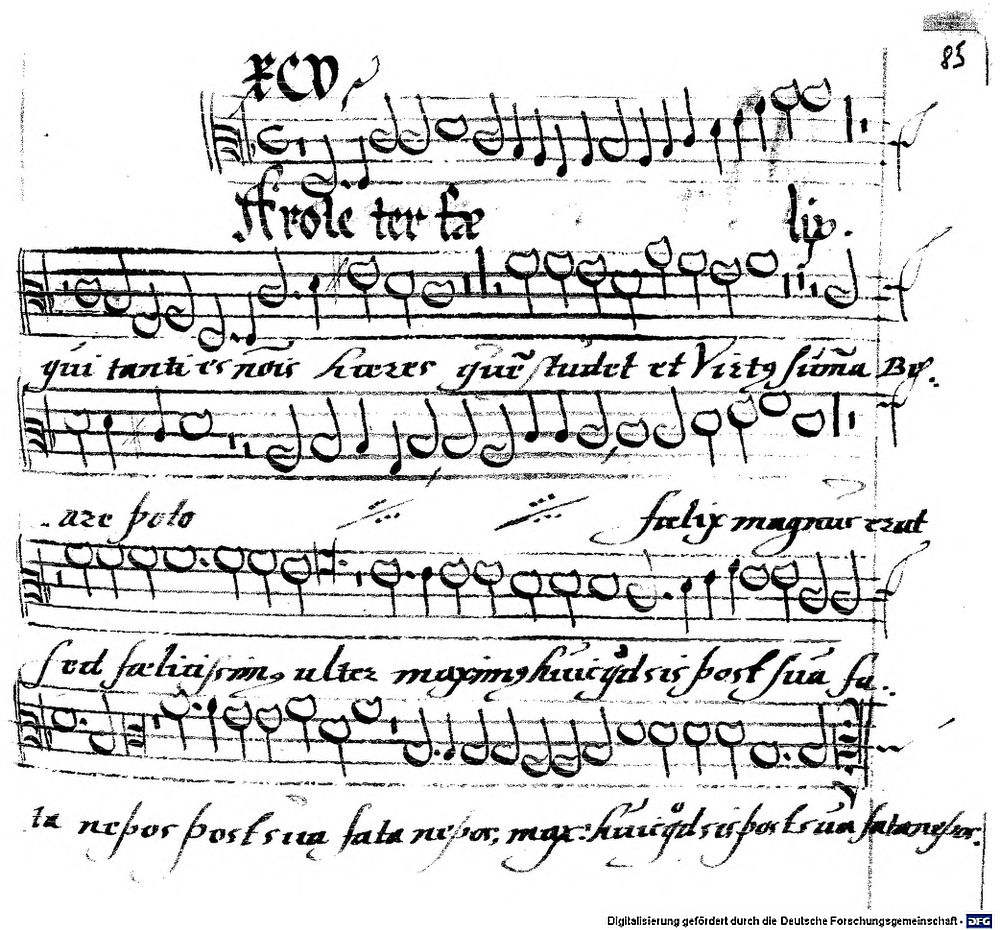 85
XCV
Arole ter fæ lix.
qui tanti es nōis hæres quē studet et Virtꝰ sūma Be.
are polo fælix magnus erat
sed fælicissimꝰ ulter maximꝰ huic qd sis post sua fa..
ta nepos post sua fata nepos, max: huic qd sis post sua fata nepos.
Digitalisierung gefördert durch die Deutsche Forschungsgemeinschaft - DFG